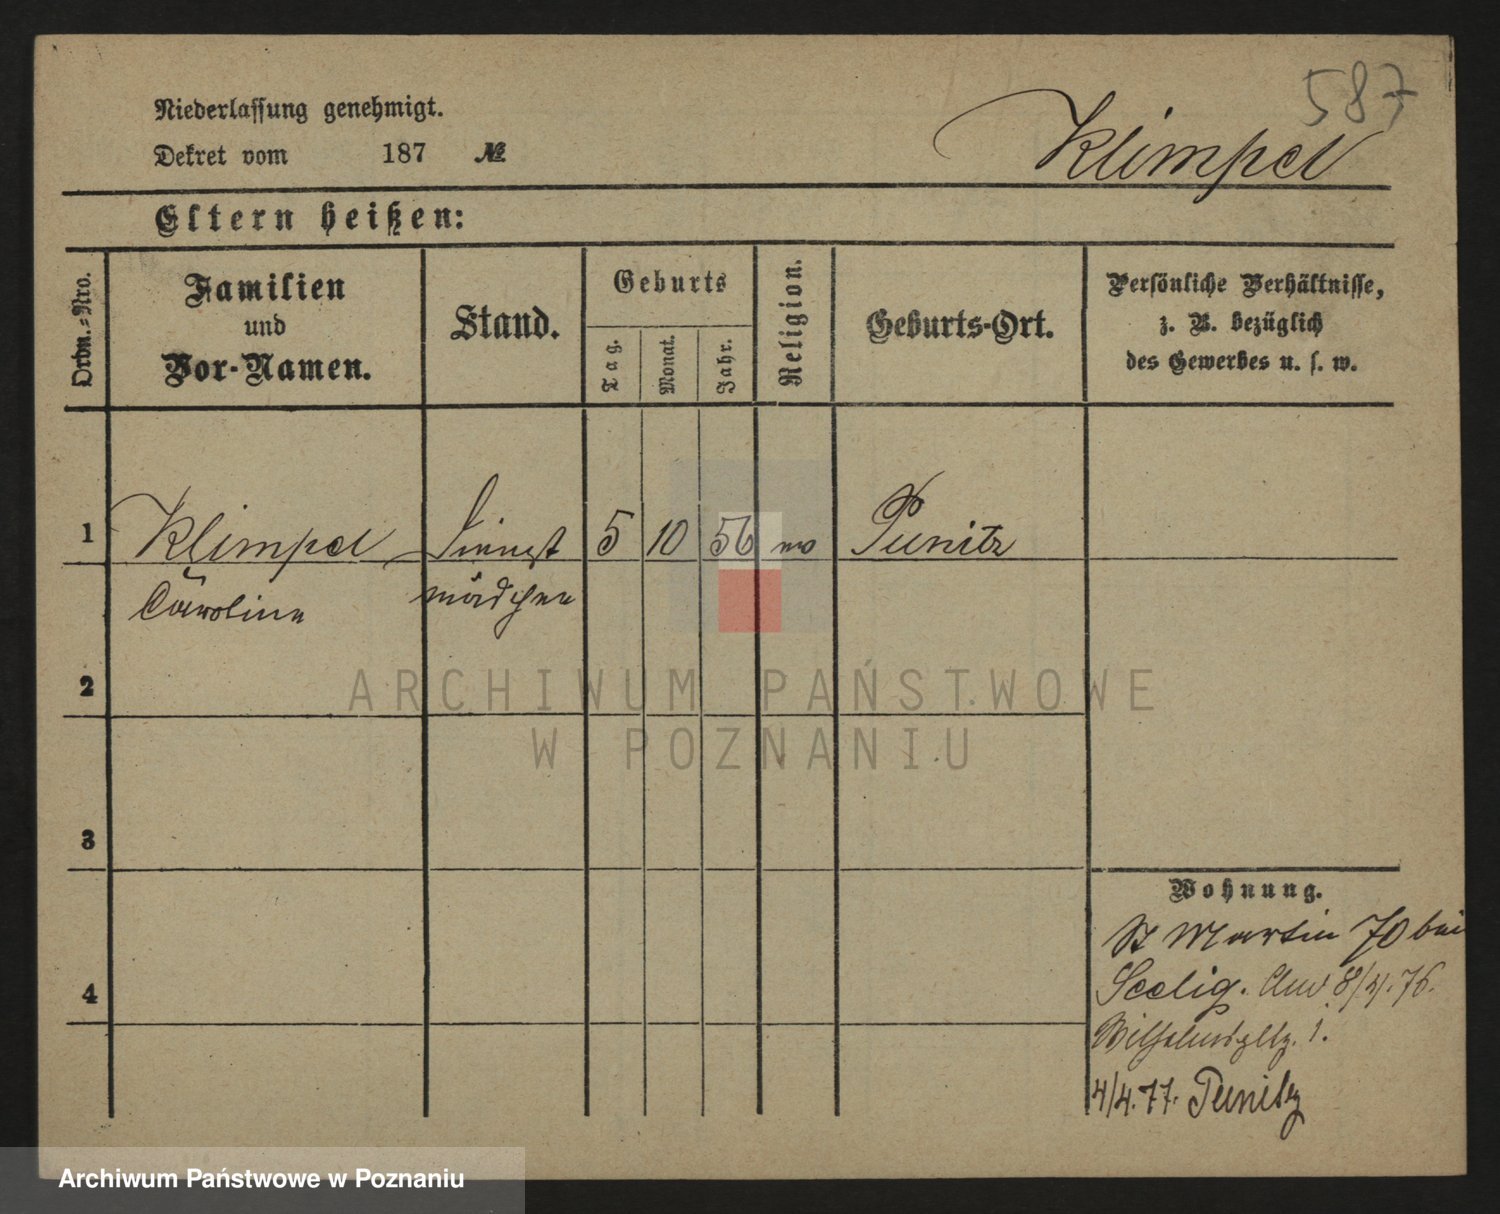 587
Niederlassung genehmigt.
Dekret vom 187 №
Klimpel
Eltern heißen:
Ordn.=Nro.
Familien
und
Vor-Namen.
Stand.
Geburts
Tag.
Monat.
Jahr.
Religion.
Geburts-Ort.
Persönliche Verhältnisse,
z. B. bezüglich
des Gewerbes u. s. w.
1 Klimpel Dienst 5 10 56 Punitz
Caroline mädchen
2
3
4
Wohnung.
St Martin 70 bei
Seelig. 8/4.76.
Wilhelmspltz. 1.
4/4.77. Punitz
ARCHIWUM PAŃSTWOWE
W POZNANIU
Archiwum Państwowe w Poznaniu